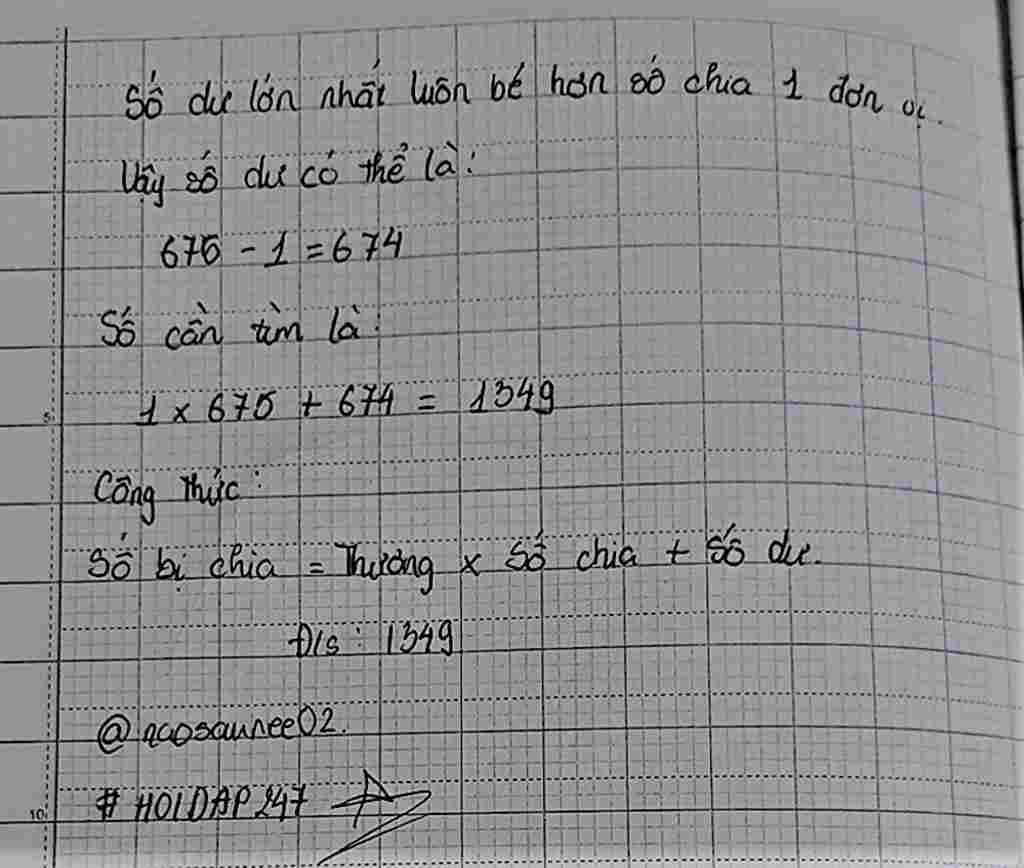 Số dư lớn nhất luôn bé hơn số chia 1 đơn vị.
Vậy số dư có thể là:
675 - 1 = 674
Số cần tìm là:
1 x 675 + 674 = 1349
Công thức:
Số bị chia = Thương x Số chia + Số dư.
Đ/s: 1349
@naosaunee02.
# HOIDAP247
5
10